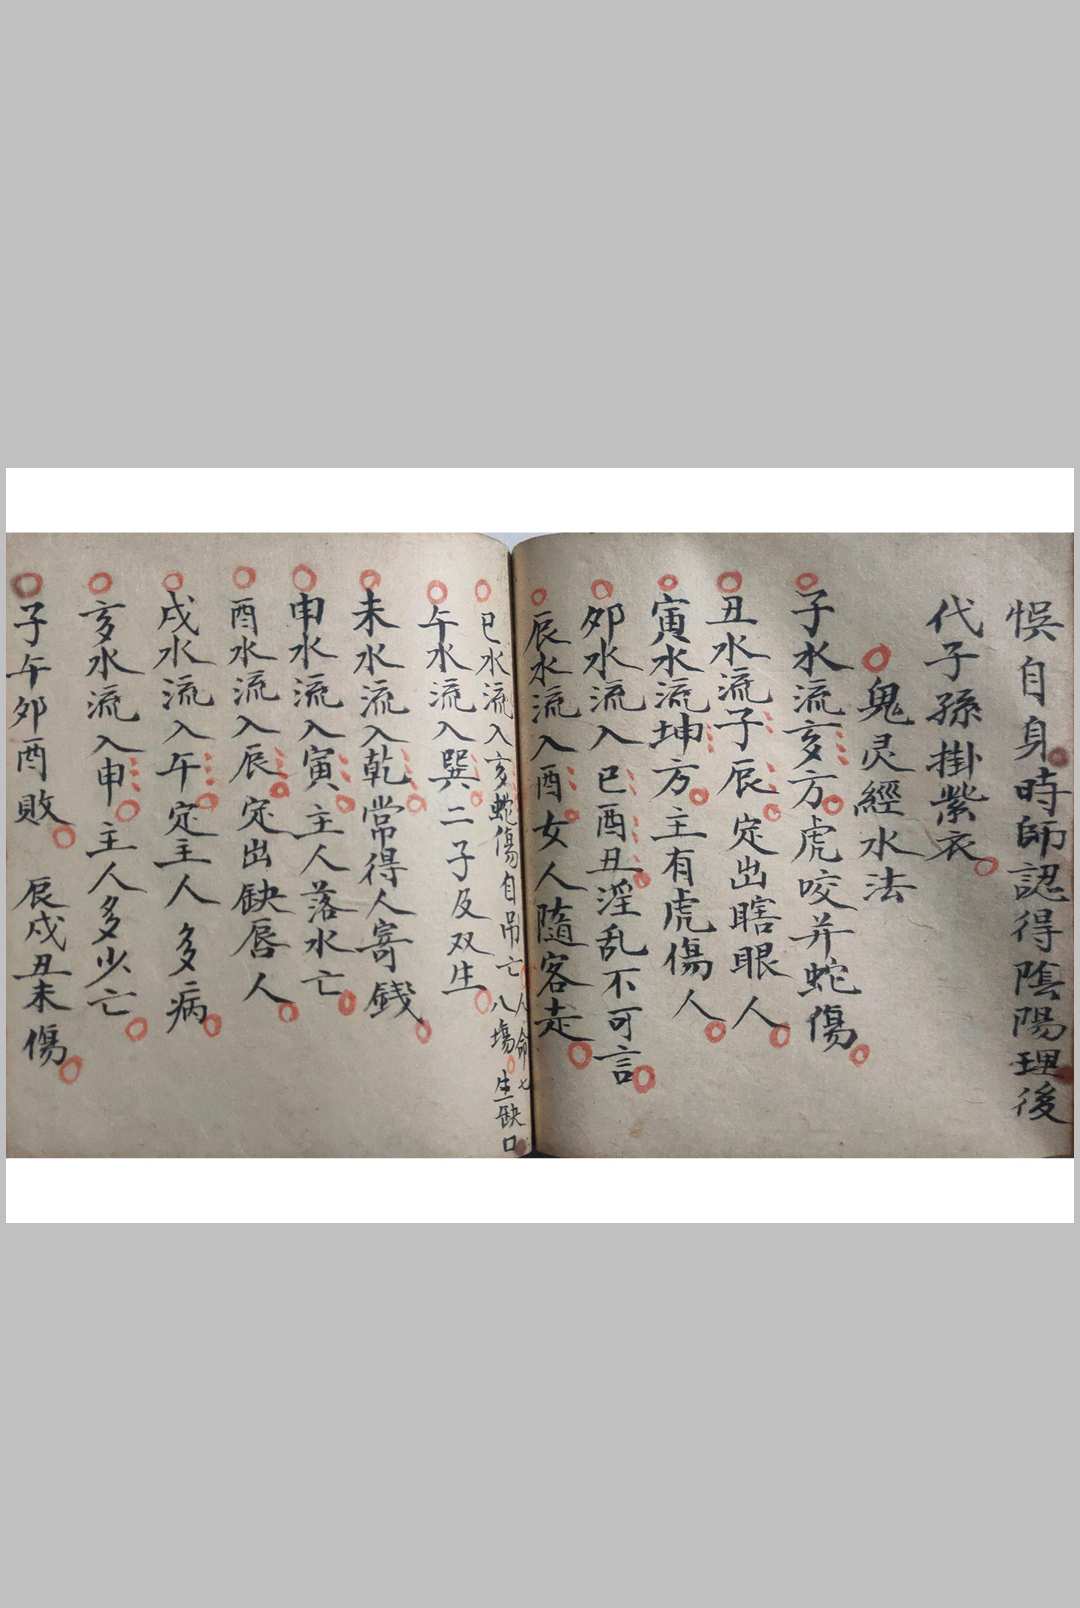 悞自身時師認得陰陽理後
代子孫掛紫衣
鬼灵經水法
子水流亥方虎咬并蛇傷
丑水流子辰定出瞎眼人
寅水流坤方主有虎傷人
夘水流入巳酉丑淫乱不可言
辰水流入酉女人隨客走
巳水流入亥蛇傷自吊亡
人命七
八塲生缺口
午水流入巽二子及双生
未水流入乾常得人寄錢
申水流入寅主人落水亡
酉水流入辰定出缺唇人
戌水流入午定主人多病
亥水流入申主人多少亡
子午夘酉敗辰戌丑未傷